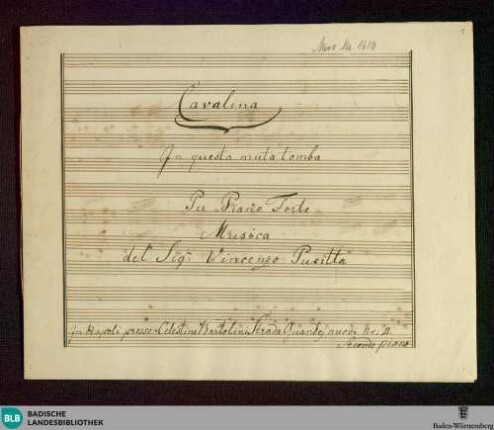 Mus. Hs. 1610
1
Cavatina
In questa muta tomba
Per Piano Forte
Musica
del Sigr Vincenzo Pucitta
In Napoli presso Celestino Bartolini Strada nuova No:
Secondo piano
BLB
BADISCHE
LANDESBIBLIOTHEK
Baden-Württemberg